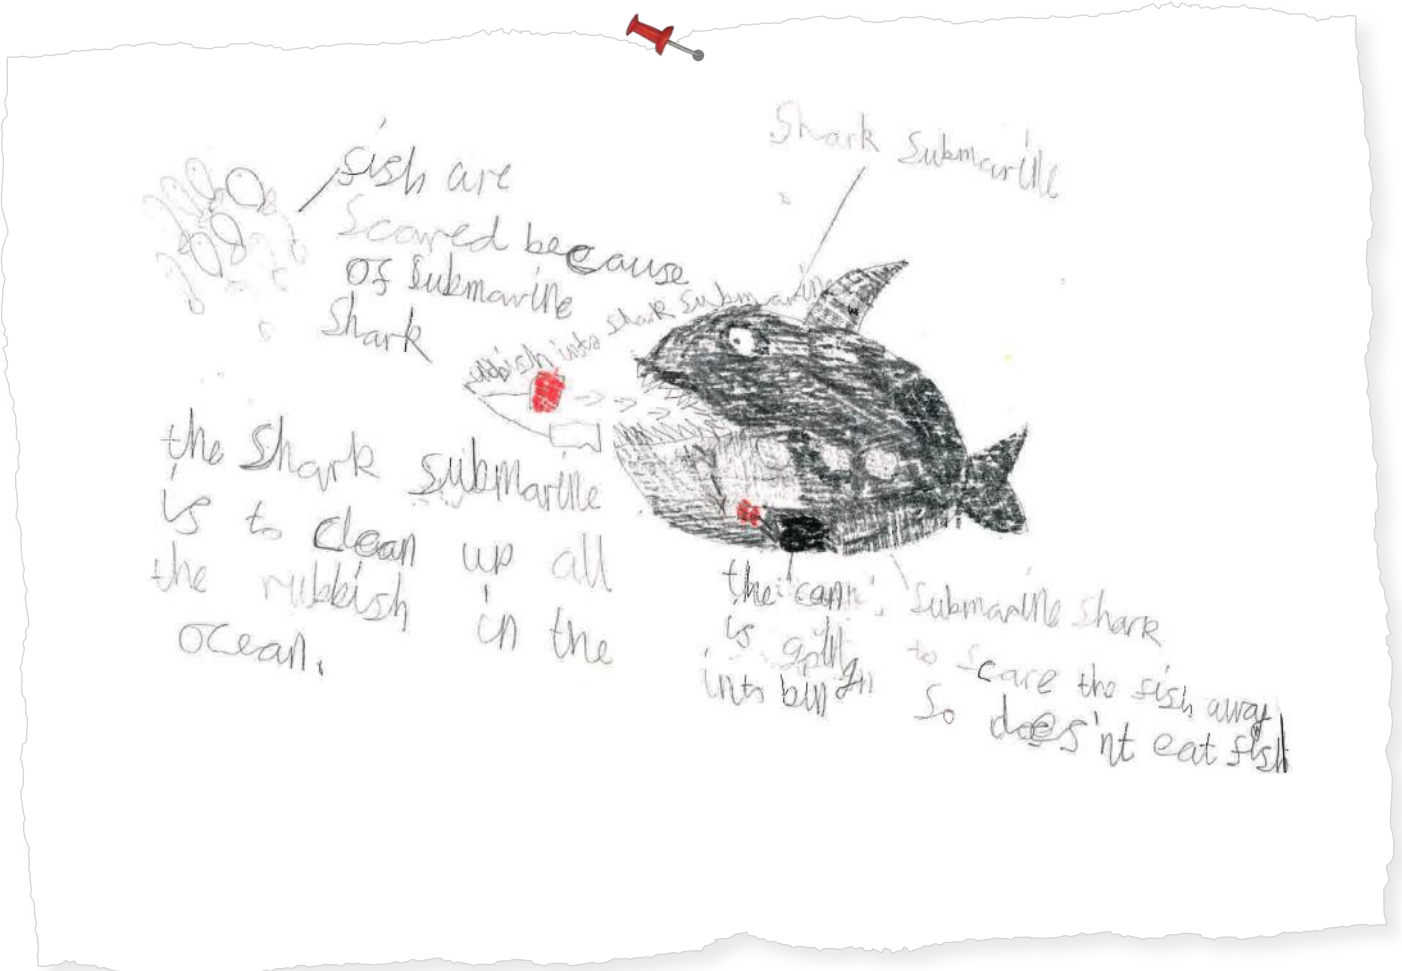 Shark Submarine
fish are
Scared because
of Submarine
Shark
into shark submarine
the Shark submarine
is to clean up all
the rubbish in the
ocean.
the can
is
into bin
Submarine Shark
to Scare the fish away
So does'nt eat fish